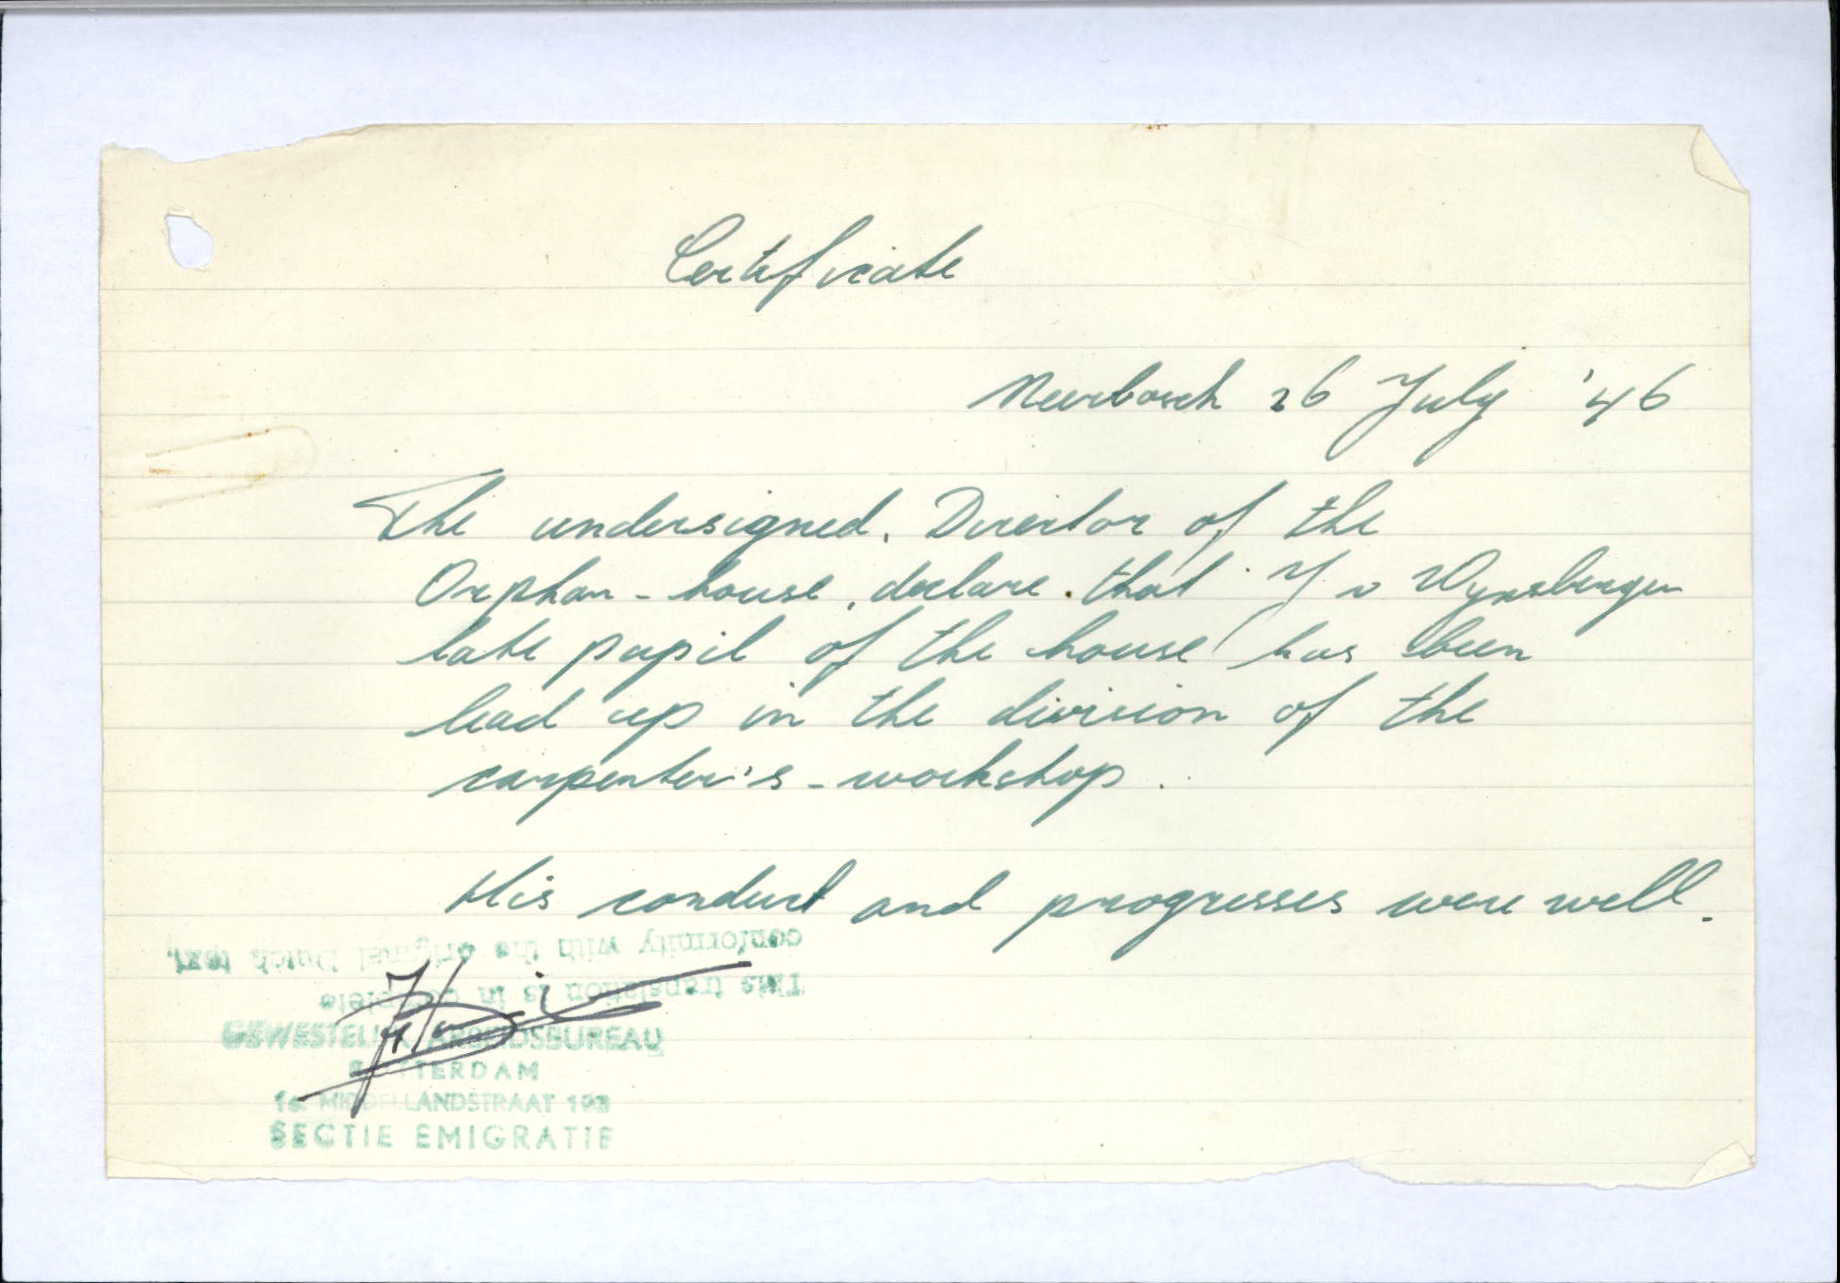 Certificate
Neerbosch 26 July '46
The undersigned, Director of the
Orphan-house, declare that J v Wynsbergen
late pupil of the house has been
lead up in the division of the
carpenter's-workshop.
His conduct and progresses were well.
This translation is in complete
conformity with the original Dutch text.
GEWESTELIJK ARBEIDSBUREAU
ROTTERDAM
1e MIDDELLANDSTRAAT 103
SECTIE EMIGRATIE